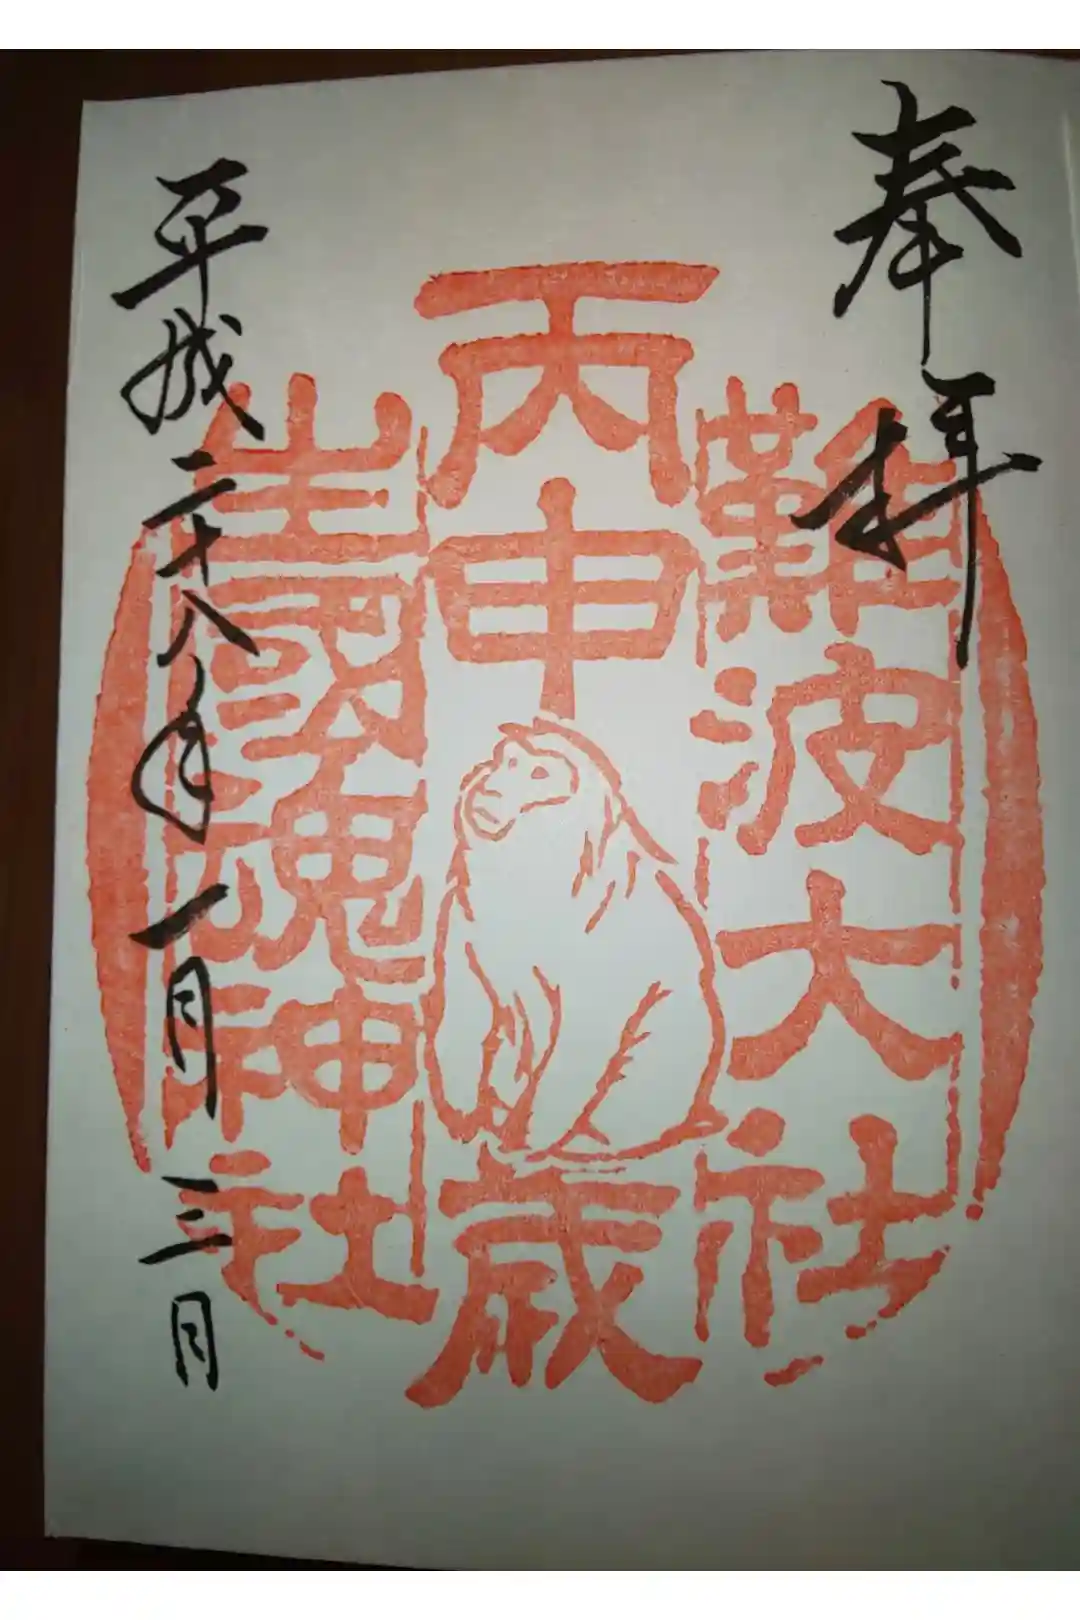 奉拝
難波大社
丙申歳
生國魂神社
平成二十八年一月三日